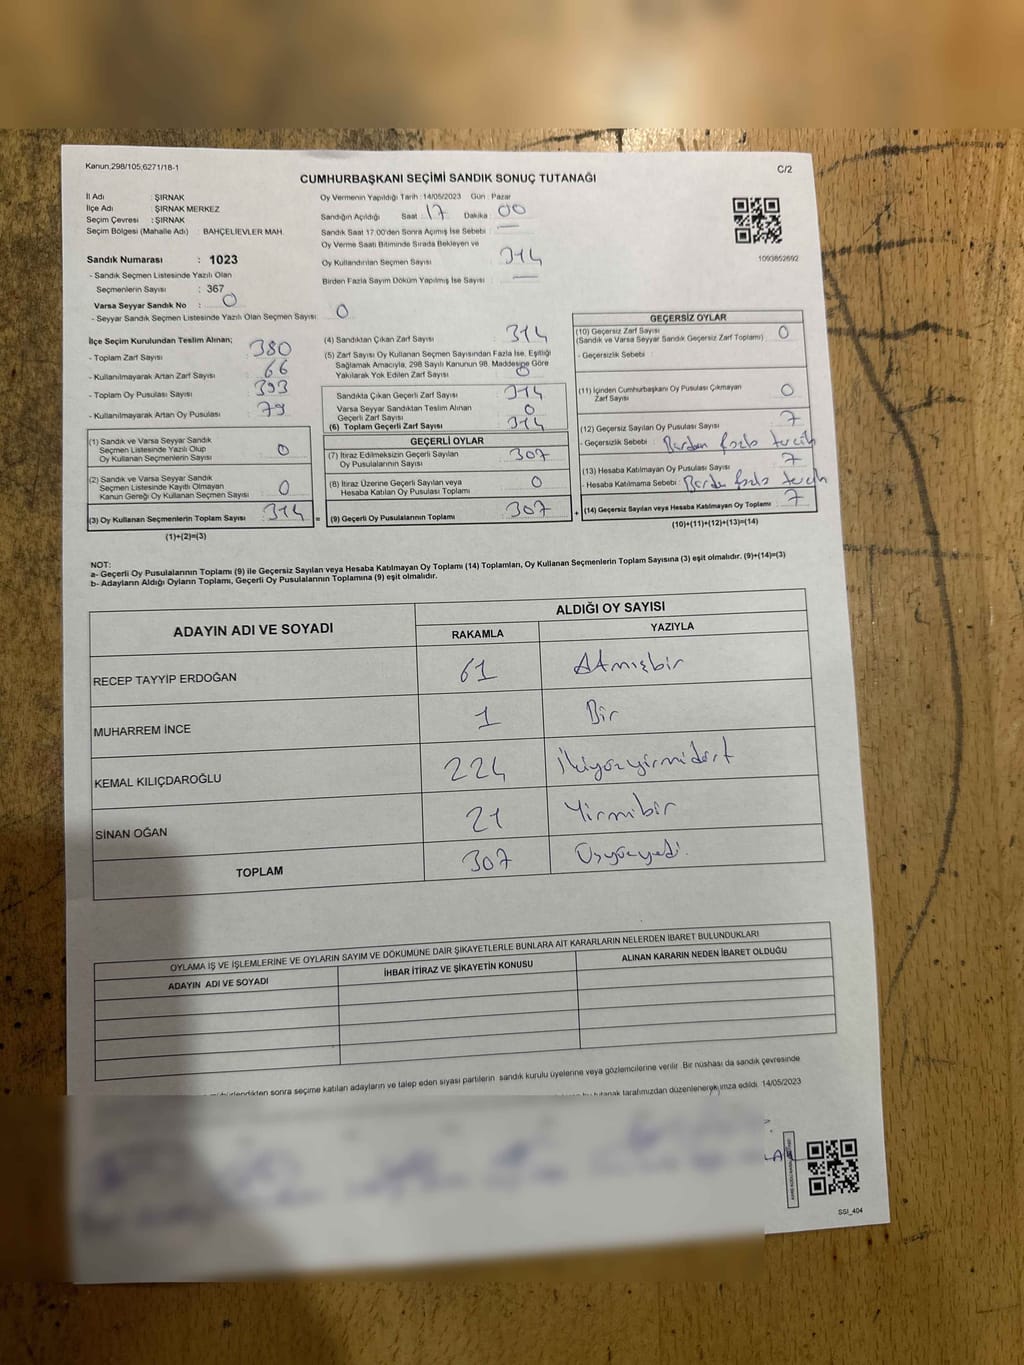 Kanun;298/105,6271/18-1
C/2
CUMHURBAŞKANI SEÇİMİ SANDIK SONUÇ TUTANAĞI
İl Adı : ŞIRNAK
İlçe Adı : ŞIRNAK MERKEZ
Seçim Çevresi : ŞIRNAK
Seçim Bölgesi (Mahalle Adı) : BAHÇELİEVLER MAH.
Sandık Numarası : 1023
- Sandık Seçmen Listesinde Yazılı Olan
Seçmenlerin Sayısı : 367
Varsa Seyyar Sandık No : 0
- Seyyar Sandık Seçmen Listesinde Yazılı Olan Seçmen Sayısı: 0
Oy Vermenin Yapıldığı Tarih : 14/05/2023 Gün : Pazar
Sandığın Açıldığı Saat : 17 Dakika : 00
Sandık Saat 17:00'den Sonra Açımış İse Sebebi : —
Oy Verme Saati Bitiminde Sırada Bekleyen ve
Oy Kullandırılan Seçmen Sayısı : 314
Birden Fazla Sayım Döküm Yapılmış İse Sayısı : —
1093852692
İlçe Seçim Kurulundan Teslim Alınan;
- Toplam Zarf Sayısı : 380
- Kullanılmayarak Artan Zarf Sayısı : 66
- Toplam Oy Pusulası Sayısı : 393
- Kullanılmayarak Artan Oy Pusulası : 79
(1) Sandık ve Varsa Seyyar Sandık
Seçmen Listesinde Yazılı Olup
Oy Kullanan Seçmenlerin Sayısı : 0
(2) Sandık ve Varsa Seyyar Sandık
Seçmen Listesinde Kayıtlı Olmayan
Kanun Gereği Oy Kullanan Seçmen Sayısı : 0
(3) Oy Kullanan Seçmenlerin Toplam Sayısı : 314 =
(1)+(2)=(3)
(4) Sandıktan Çıkan Zarf Sayısı : 314
(5) Zarf Sayısı Oy Kullanan Seçmen Sayısından Fazla İse, Eşitliği
Sağlamak Amacıyla, 298 Sayılı Kanunun 98. Maddesine Göre
Yakılarak Yok Edilen Zarf Sayısı : 0
Sandıkta Çıkan Geçerli Zarf Sayısı : 314
Varsa Seyyar Sandıktan Teslim Alınan
Geçerli Zarf Sayısı : 0
(6) Toplam Geçerli Zarf Sayısı : 314
GEÇERLİ OYLAR
(7) İtiraz Edilmeksizin Geçerli Sayılan
Oy Pusulalarının Sayısı : 307
(8) İtiraz Üzerine Geçerli Sayılan veya
Hesaba Katılan Oy Pusulası Toplamı : 0
(9) Geçerli Oy Pusulalarının Toplamı : 307 +
GEÇERSİZ OYLAR
(10) Geçersiz Zarf Sayısı
(Sandık ve Varsa Seyyar Sandık Geçersiz Zarf Toplamı) : 0
- Geçersizlik Sebebi :
(11) İçinden Cumhurbaşkanı Oy Pusulası Çıkmayan
Zarf Sayısı : 0
(12) Geçersiz Sayılan Oy Pusulası Sayısı : 7
- Geçersizlik Sebebi : Birden fazla tercih
(13) Hesaba Katılmayan Oy Pusulası Sayısı : 7
- Hesaba Katılmama Sebebi : Birden fazla tercih
(14) Geçersiz Sayılan veya Hesaba Katılmayan Oy Toplamı : 7
(10)+(11)+(12)+(13)=(14)
NOT:
a- Geçerli Oy Pusulalarının Toplamı (9) ile Geçersiz Sayılan veya Hesaba Katılmayan Oy Toplamı (14) Toplamları, Oy Kullanan Seçmenlerin Toplam Sayısına (3) eşit olmalıdır. (9)+(14)=(3)
b- Adayların Aldığı Oyların Toplamı, Geçerli Oy Pusulalarının Toplamına (9) eşit olmalıdır.
ADAYIN ADI VE SOYADI
ALDIĞI OY SAYISI
RAKAMLA YAZIYLA
RECEP TAYYİP ERDOĞAN 61 Atmışbir
MUHARREM İNCE 1 Bir
KEMAL KILIÇDAROĞLU 224 İkiyüzyirmidört
SİNAN OĞAN 21 Yirmibir
TOPLAM 307 Üçyüzyedi.
OYLAMA İŞ VE İŞLEMLERİNE VE OYLARIN SAYIM VE DÖKÜMÜNE DAİR ŞİKAYETLERLE BUNLARA AİT KARARLARIN NELERDEN İBARET BULUNDUKLARI
ADAYIN ADI VE SOYADI İHBAR İTİRAZ VE ŞİKAYETİN KONUSU ALINAN KARARIN NEDEN İBARET OLDUĞU
sonra seçime katılan adayların ve talep eden siyasi partilerin sandık kurulu üyelerine veya gözlemcilerine verilir. Bir nüshası da sandık çevresinde
tutanak tarafımızdan düzenlenerek imza edildi. 14/05/2023
SSI_404